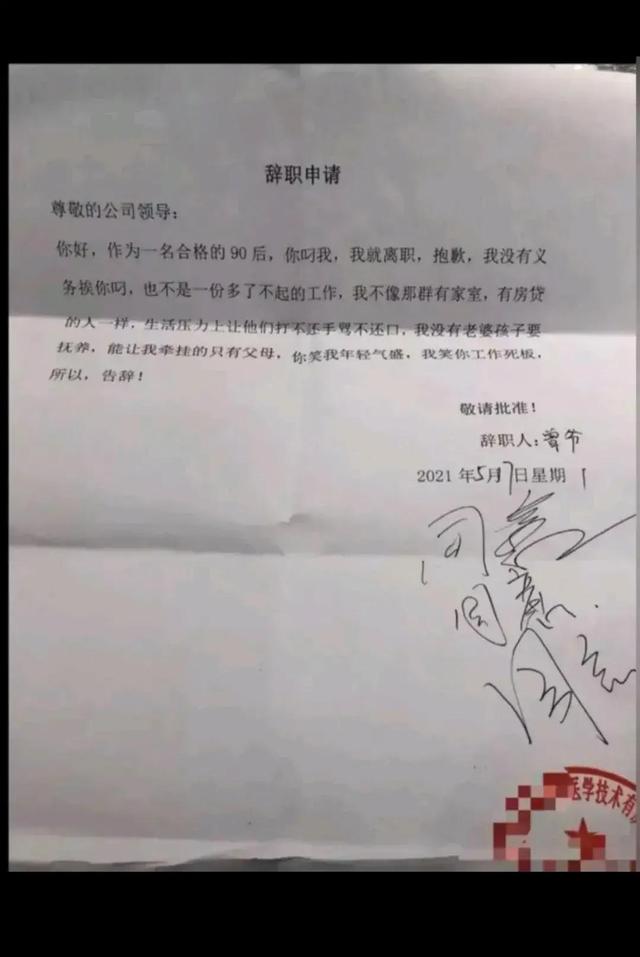 辞职申请
尊敬的公司领导：
你好，作为一名合格的90后，你叼我，我就离职，抱歉，我没有义
务挨你叼，也不是一份多了不起的工作，我不像那群有家室，有房贷
的人一样，生活压力上让他们打不还手骂不还口，我没有老婆孩子要
抚养，能让我牵挂的只有父母，你笑我年轻气盛，我笑你工作死板，
所以，告辞！
敬请批准！
辞职人：
2021年5月7日星期1
同意
同意
医学技术有